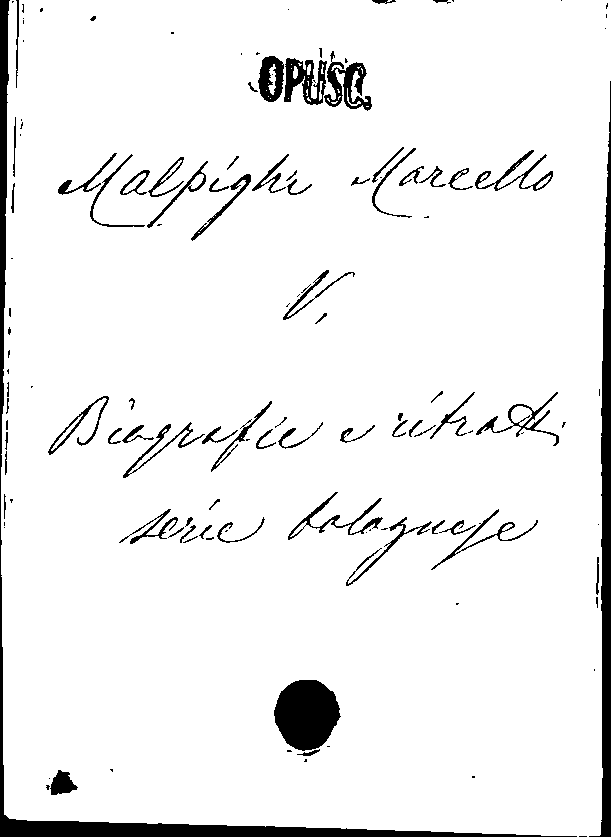 OPUSC.
Malpighi Marcello
V.
Biografie e ritratti
serie bolognese